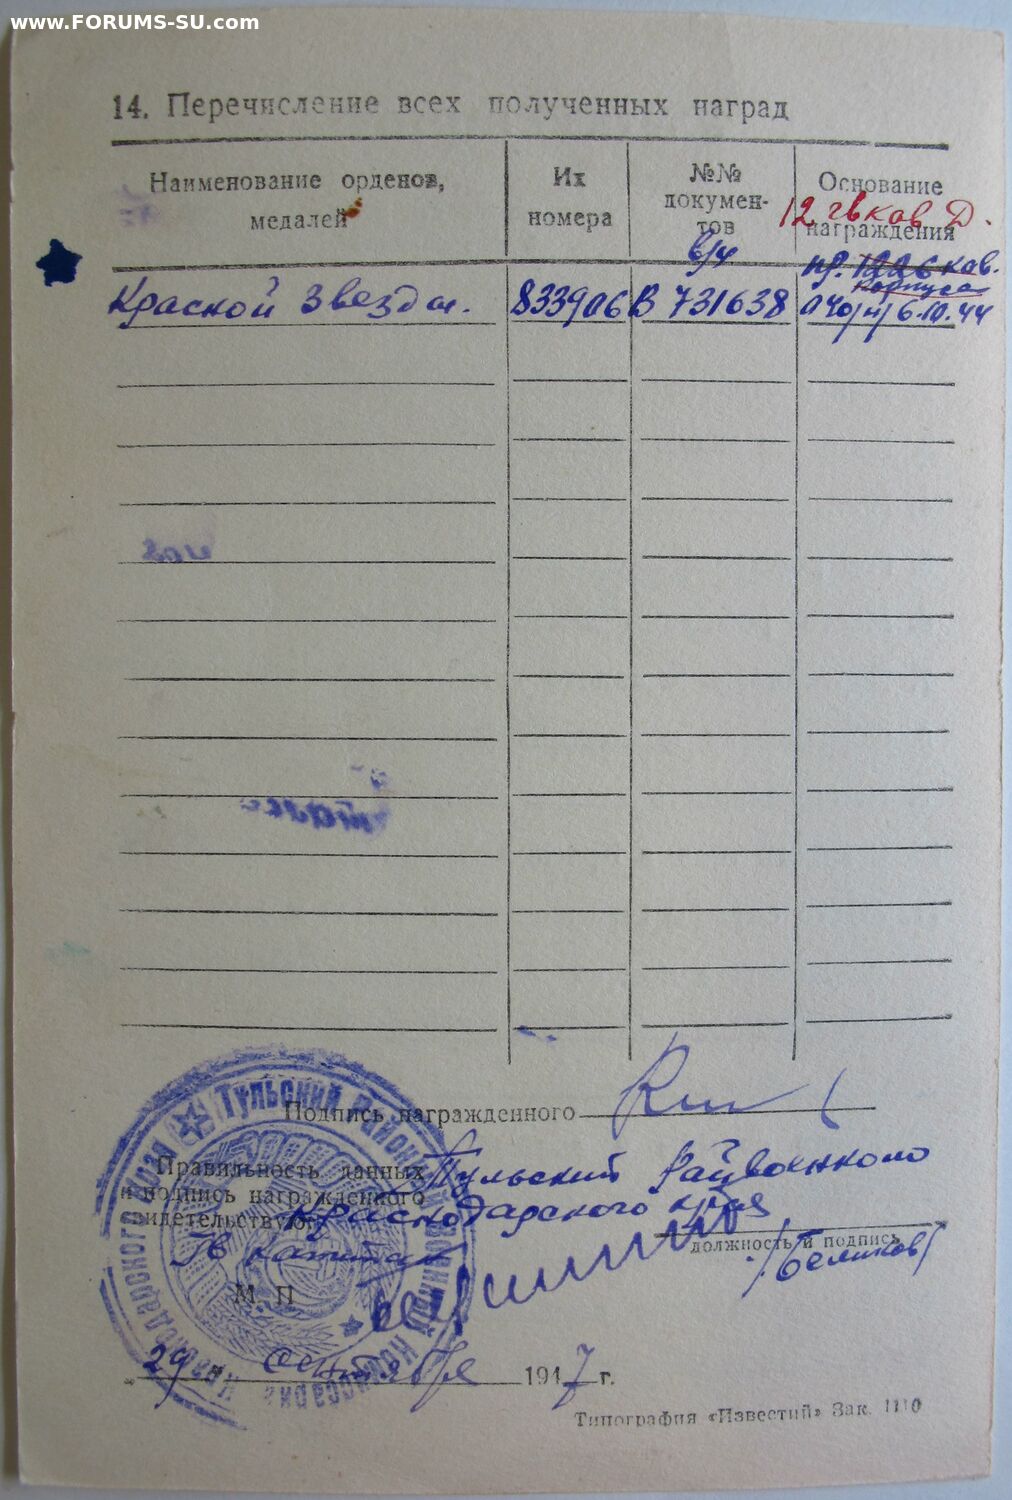 www.FORUMS-SU.com
14. Перечисление всех полученных наград
Наименование орденов, медалей
Их номера
№№ документов
Основание награждения
12 гв кав Д.
в/ч
пр. кав.
корпуса
Красной Звезды. 833906 В 731638 6.10.44
Подпись награжденного
Правильность данных
и подпись награжденного
видетельствую
Тульский Райвоенком
Краснодарского края
должность и подпись
Гв капитан
/Беликов/
М. П.
29 " сентября 1947 г.
Тульский районный военный комиссариат Краснодарского края
Типография «Известий» Зак. 1110